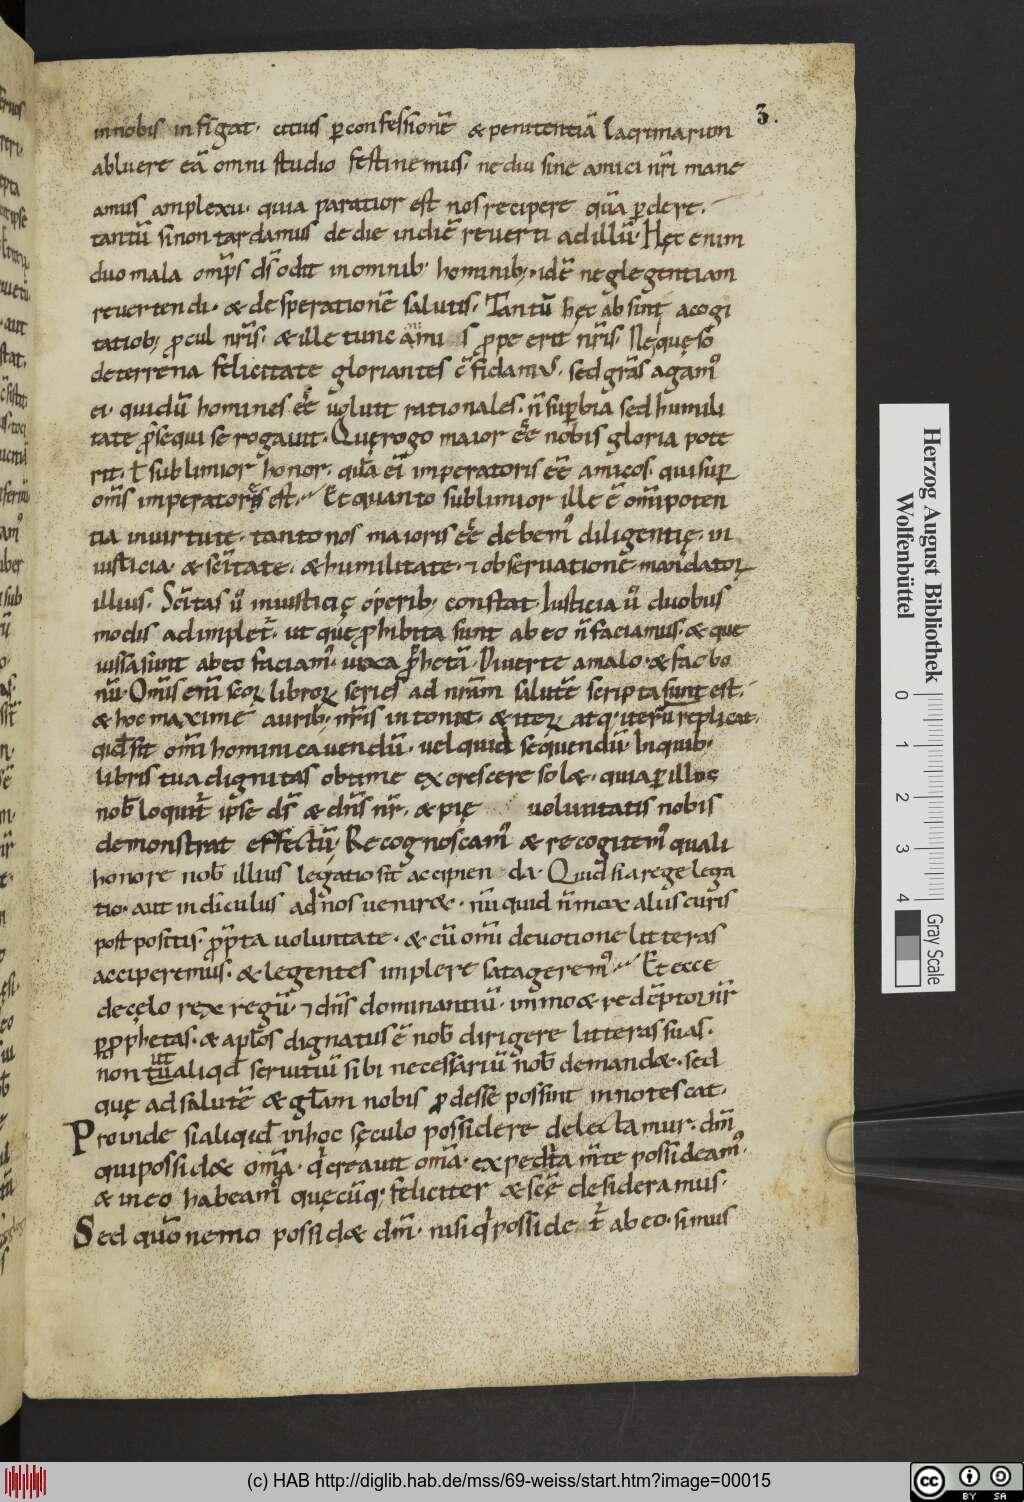 3.
in nobis infīgat. citus ꝑ confessionē & penitentiā lacrimarum
abluere eā omni studio festinemus. ne diu sine amici nr̄i mane
amus amplexu. quia paratior est nos recipere quā ꝑdere.
tantū si non tardamus de die in diē reverti ad illū. Hęc enim
duo mala om̄ps ds̄ odit in omnib; hominib;. idē neglegentiam
revertendi. & desperationē salutis. Tantū hęc absint a cogi
tatiob; ꝓcul nr̄is. & ille tunc prope erit nr̄is. Neque so
de terrena felicitate gloriantes sed grās agam᷒
ei. qui dū homines eē voluit rationales. n̄ suꝑbia sed humili
tate ꝓsequi se rogavit. Quę rogo maior eē nobis gloria pote
rit. ł sublimior honor. quā ei imperatoris eē amicos. qui suꝑ
om̄s imperatores est. Et quanto sublimior ille ē om̄ipoten
tia in virtute. tanto nos maioris eē debem᷒ diligentię. in
iusticia. & scītate. & humilitate. ⁊ observatione mandatoꝝ
illius. Scītas ū in iusticię operib; constat. Iusticia ū duobus
modis adimplet̄. ut quę ꝓhibita sunt ab eo n̄ faciamus. & que
iussa sunt ab eo faciam᷒. iuxta ꝓphetā. Diverte a malo. & fac bo
nū. Om̄is enī scoꝝ libroꝝ series ad nr̄am salutē scripta sunt est.
& hoc maxime aurib; nr̄is intonat. & iteꝝ atq; iterū replicat.
qd̄ sit om̄i homini cavendū. vel quid sequendū. In quib;
libris tua dignitas obtime excrescere sol&. quia ꝑ illos
nob̄ loquit̄ ipse ds̄ & dn̄s nr̄. & pię voluntatis nobis
demonstrat effectū. Recognoscam᷒ & recogitem᷒ quali
honore nob̄ illius legatio sit accipienda. Quid si a rege lega
tio. aut indiculus ad nos venir&. nūquid n̄ mox aliis curis
postpositis. prōpta voluntate. & cū om̄i devotione litteras
acciperemus. & legentes implere satagerem᷒. Et ecce
de cęlo rex regū. ⁊ dn̄s dominantiū. immo & redēptor nr̄
ꝑ ꝓphetas. & apl̄os dignatus ē nob̄ dirigere litteras suas.
ut
non tū aliqd̄ servitiū sibi necessariū nob̄ demand&. sed
quę ad salutē & gl̄am nobis ꝓdesse possint innotescat.
Proinde si aliquid in hoc sęculo possidere delectamur. dm̄
qui possid& om̄a. q̄ creavit om̄a. expedita m̄te possideam᷒.
& in eo habeam᷒ quęcūq; feliciter & sc̄ę desideramus.
Sed quō nemo possid& dm̄. nisi q̄ posside t̄ ab eo. simus
Herzog August Bibliothek
Wolfenbüttel
0 1 2 3 4
Gray Scale
(c) HAB http://diglib.hab.de/mss/69-weiss/start.htm?image=00015
cc BY SA